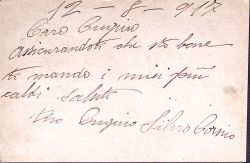 12 - 8 - 917
Caro Cugino
Assicurandoti che sto bene
ti mando i miei più
caldi saluti
Cugino Silvio